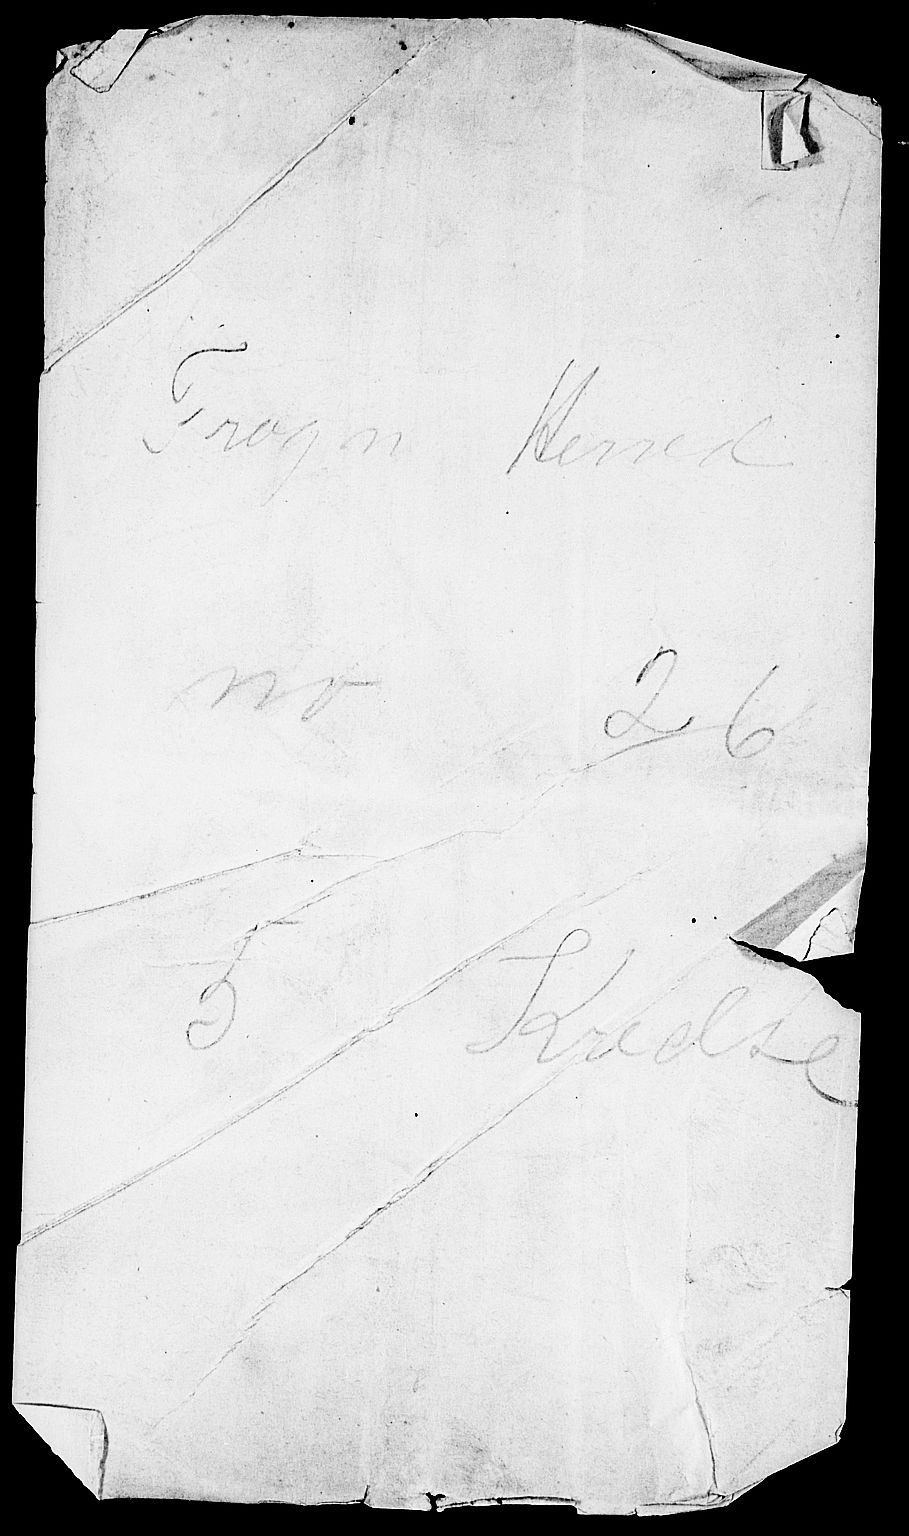 Frogn Herred
no 26
5 Kredse